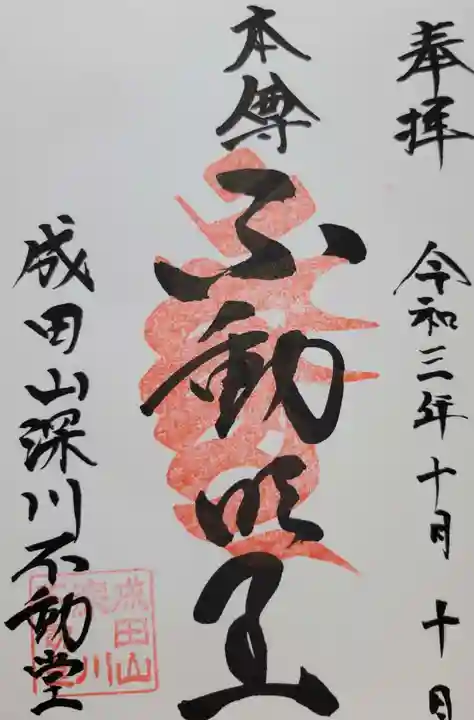 奉拝 令和三年十月十日
本尊
不動明王
成田山深川不動堂
成田山